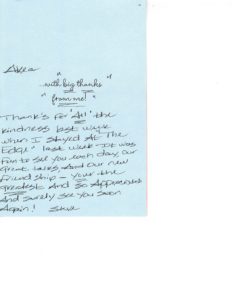 "
"
...with big thanks
from me!
"
"
Thank's for "All" the
kindness last week
when I stayed At The
Edge" last week - It was
Fun to see you each day, our
great talks And our new
Friend ship - your the
greatest And so Appreciated
And surely see you soon
Again! Steve